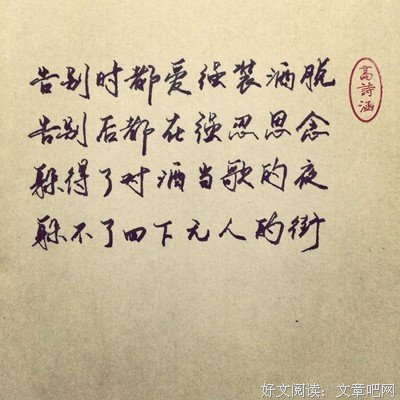 告别时都爱强装洒脱
告别后都在强忍思念
躲得了对酒当歌的夜
躲不了四下无人的街
高詩涵
好文阅读：文章吧网